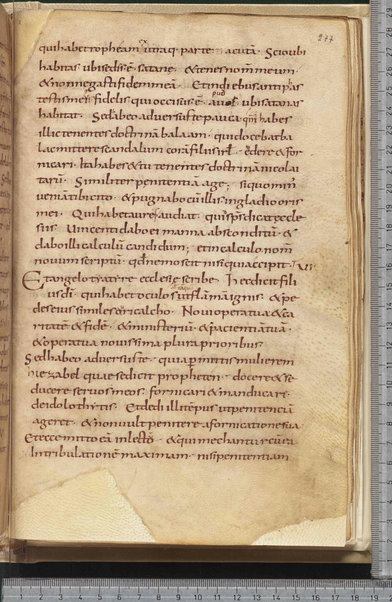 277
qui habet ropheam utraq; parte acutā. Scio ubi
habitas ubi sedis ē satane. & tenes nom̄ meum.
& non negasti fidem meā. Et in diebus antiphas
testis meus fidelis qui occisus ē apud uos ubi satanas
habitat. Sed habeo aduersus te pauca. qm̄ habes
illic tenentes doctrinā balaam. qui docebat ba
lac mittere scandalum corā filiis isrl. edere & for
nicari. Ita habes & tu tenentes doctrinā nicolai
tarū. Similiter penitentiā age. si quo min'
ueniā tibi cito. & pugnabo cū illis in gladio oris
mei. Qui habet aurē audiat. quid sp̄s dicat eccle
siis. Vincenti dabo ei manna absconditū. &
dabo illi calculū candidum. et in calculo nom̄
nouum scriptū. qd̄ nemo scit nisi qui accipit.
Et angelo tyatire ecclesie scribe. Haec dicit fili
us dī. qui habet oculos ut flāmā ignis. & pe
des eius similes auricalcho. Noui opera tua & ca
ritatē & fidē. & ministeriū. & pacientiā tuā.
& opera tua nouissima plura prioribus.
Sed habeo aduersus te. quia permittis mulierem
hiezabel quae se dicit propheten. docere & se
ducere seruos meos. fornicari & manducare
de idolothytis. Et dedi illi tēpus ut penitenciā
ageret. & non uult penitere a fornicatione sua
Et ecce mitto eā in lecto. & qui mechantur cū ea
In tribulationē maximam. nisi penitentiam